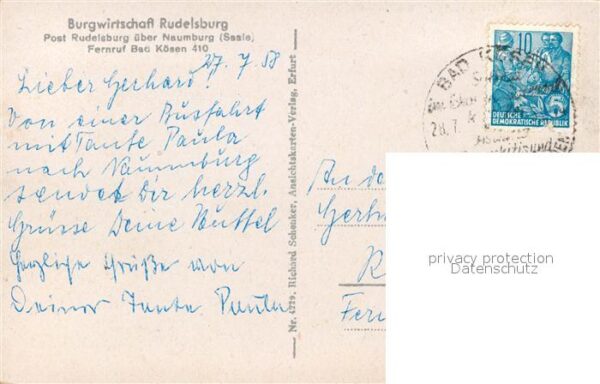 Burgwirtschaft Rudelsburg
Post Rudelsburg über Naumburg (Saale)
Fernruf Bad Kösen 410
27. 7. 58
Lieber Gerhard!
Von einer Ausfahrt
mit Tante Paula
nach Naumburg
sendet Dir herzl.
Grüsse Deine
Herzliche Grüße von
Deiner Tante Paula
Nr. 4229, Richard Schenker, Ansichtskarten-Verlag, Erfurt
10
DEUTSCHE
DEMOKRATISCHE REPUBLIK
BAD KÖSEN
28.7.
An
privacy protection
Datenschutz